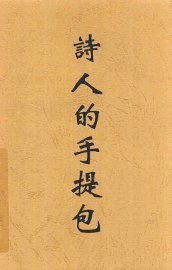 詩人的手提包